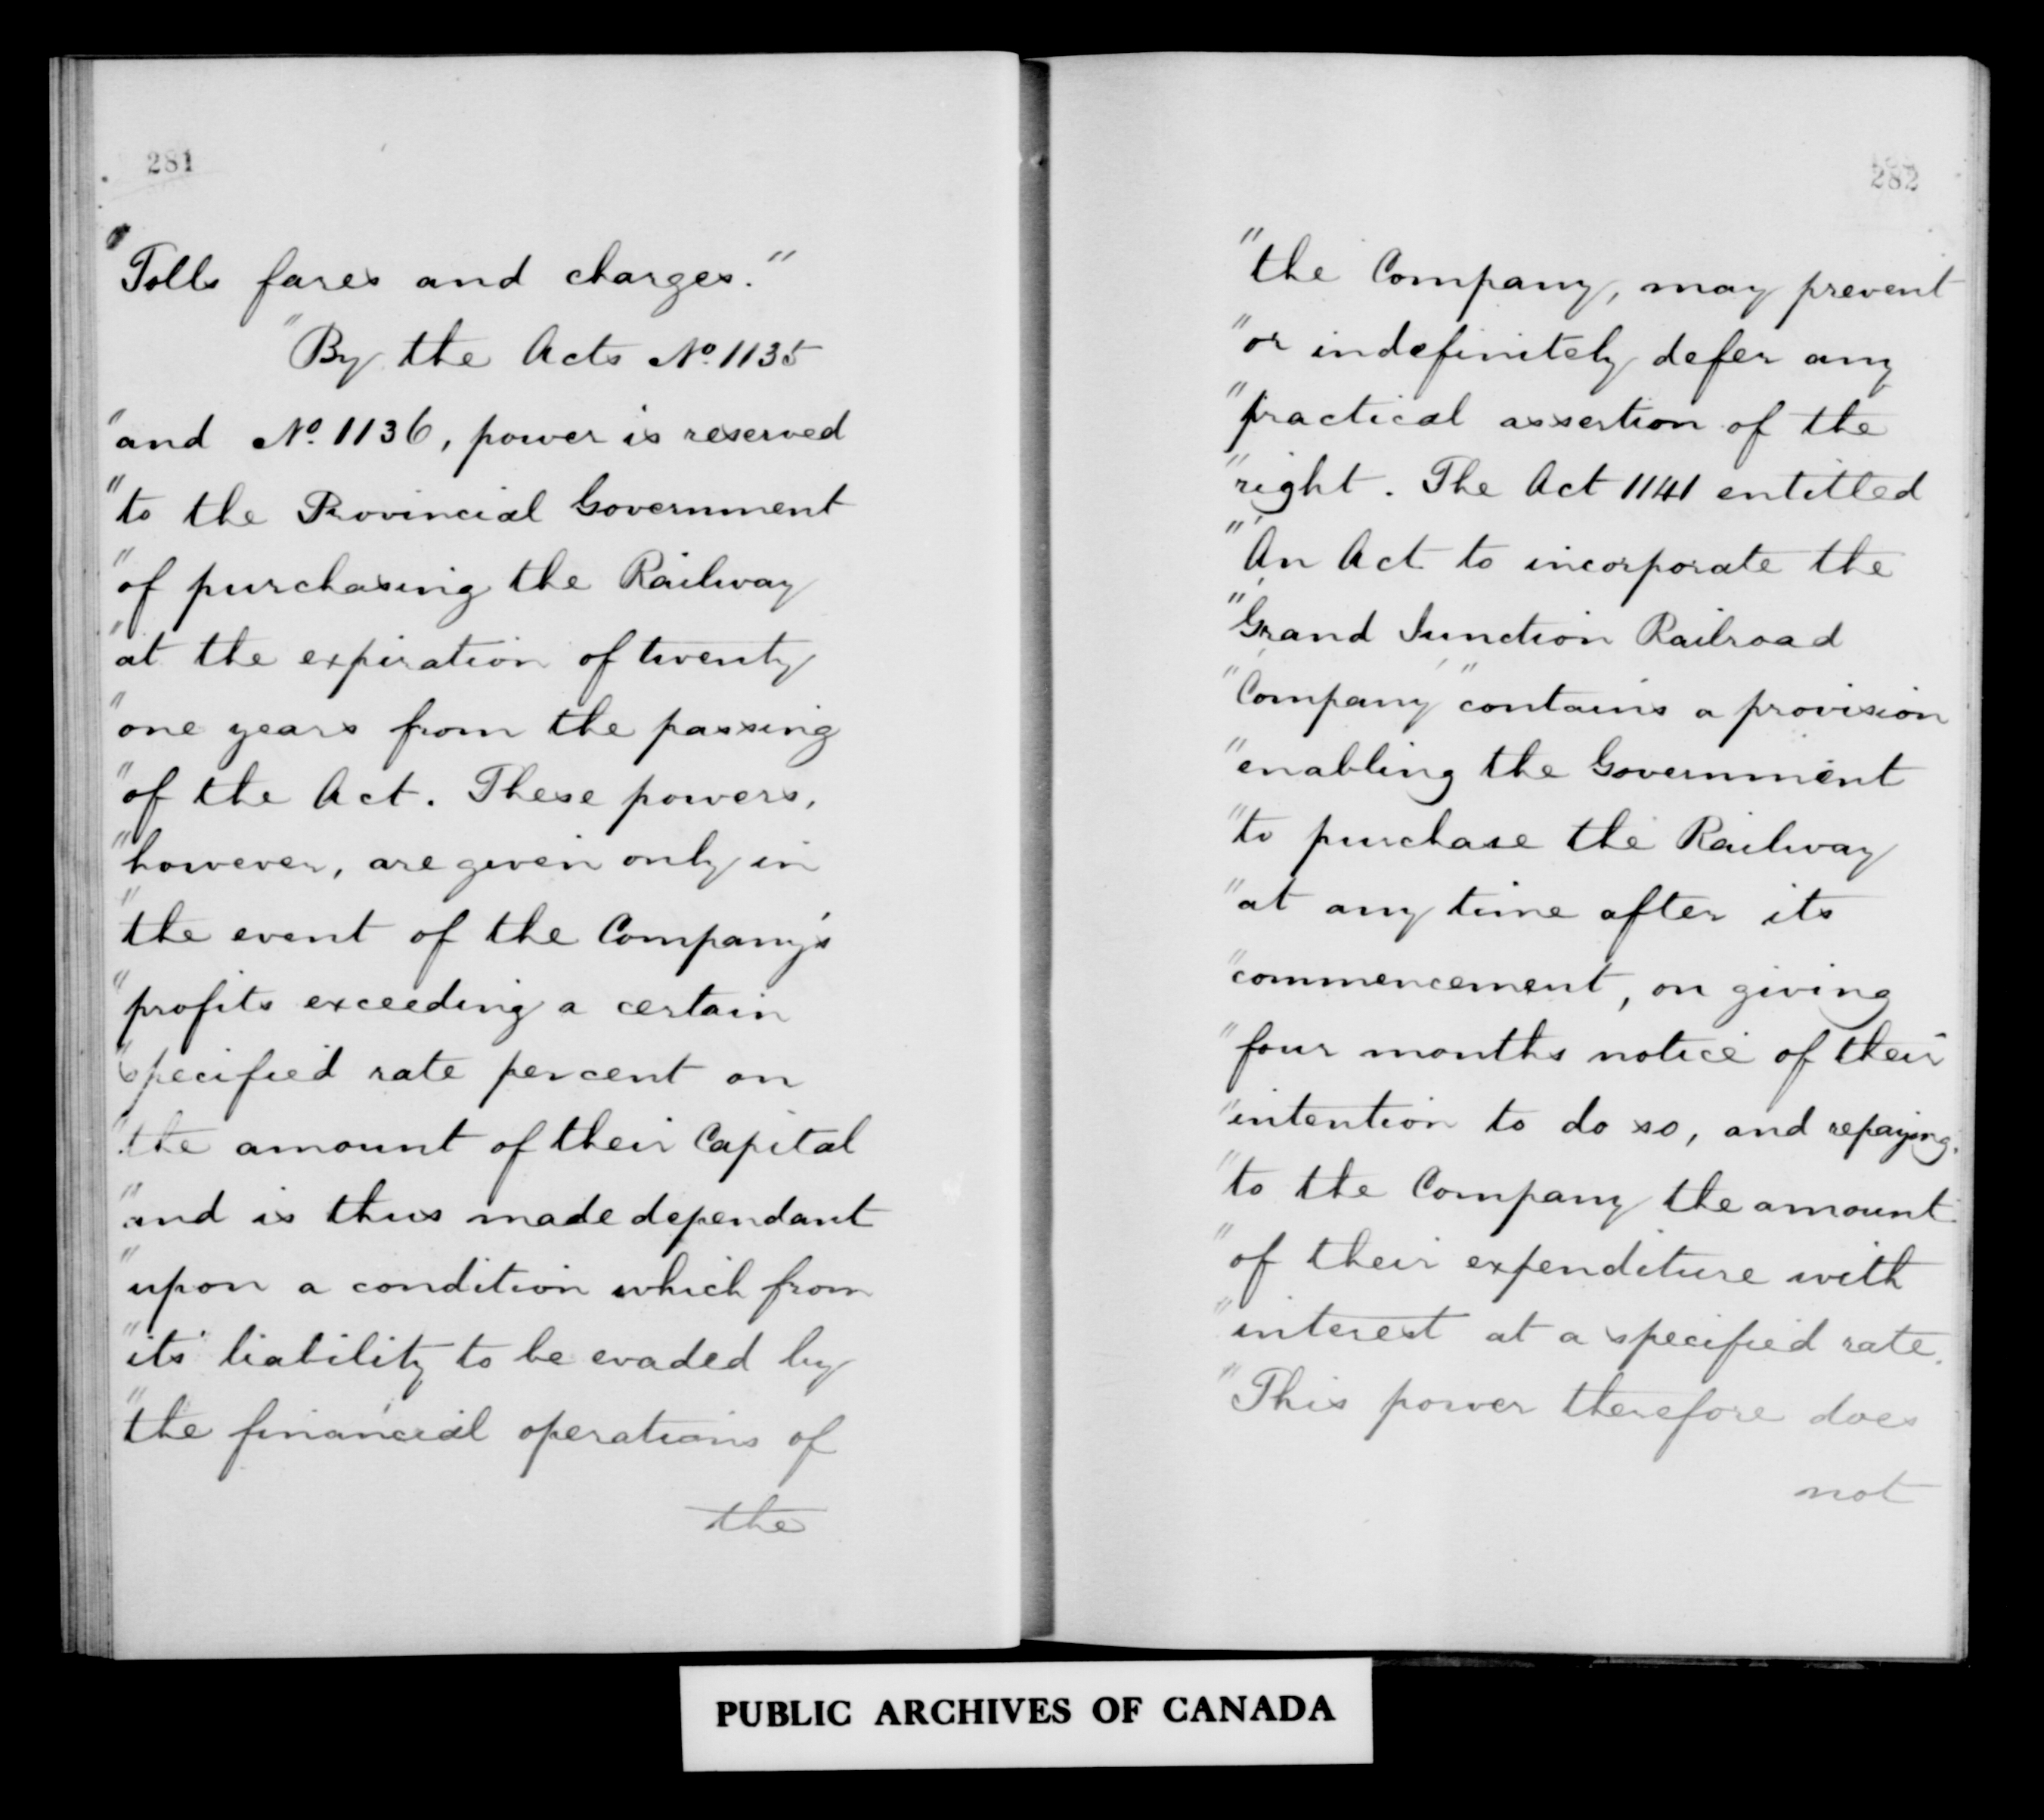 281
"Tolls fares and charges."
"By the Acts No. 1135
"and No. 1136, power is reserved
"to the Provincial Government
"of purchasing the Railway
"at the expiration of twenty
"one years from the passing
"of the Act. These powers,
"however, are given only in
"the event of the Company's
"profits exceeding a certain
"specified rate percent on
"the amount of their Capital
"and is thus made dependant
"upon a condition which from
"its liability to be evaded by
"the financial operations of
the
282
"the Company, may prevent
"or indefinitely defer any
"practical assertion of the
"right. The Act 1141 entitled
"'An Act to incorporate the
"'Grand Junction Railroad
"'Company'" contains a provision
"enabling the Government
"to purchase the Railway
"at any time after its
"commencement, on giving
"four months notice of their
"intention to do so, and repaying
"to the Company the amount
"of their expenditure with
"interest at a specified rate.
"This power therefore does
not
PUBLIC ARCHIVES OF CANADA